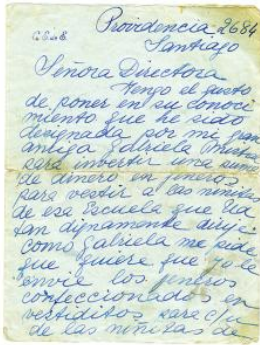 C.E. de E.
Providencia 2684
Santiago
Señora Directora
Tengo el gusto
de poner en su conoci
miento que he sido
designada por mi gran
amiga Gabriela Mistral
para invertir una suma
de dinero en jeneros
para vestir a las niñitas
de esa Escuela que Ud
tan dignamente dirije
como Gabriela me pide
que quiere que yo le
envie los jeneros
confeccionados en
vestiditos para c/u
de las niñitas de